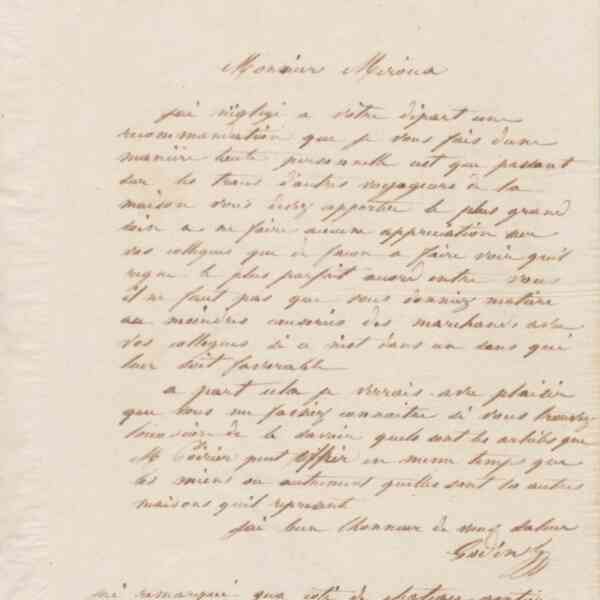 Monsieur Méroux
J'ai négligé a votre départ une
recommandation que je vous fais d'une
manière toute personnelle cest que passant
sur les traces d'autres voyageurs de la
maison vous devez apporter le plus grand
soin a ne faire aucune appréciation sur
vos collegues que de facon a faire voir quil
regne le plus parfait accord entre vous
il ne faut pas que vous donniez matière
au moindres causeries des marchands avec
vos collegues si ce n'est dans un sens qui
leur soit favorable
a part cela je verrais avec plaisir
que vous me fassiez connaitre si vous trouvez
l'occasion de le savoir quels sont les articles que
M. Poirier peut offrir en meme temps que
les miens ou autrement quelles sont les autres
maisons quil represent
J'ai bien l'honneur de vous saluer
Godin
remarqué que